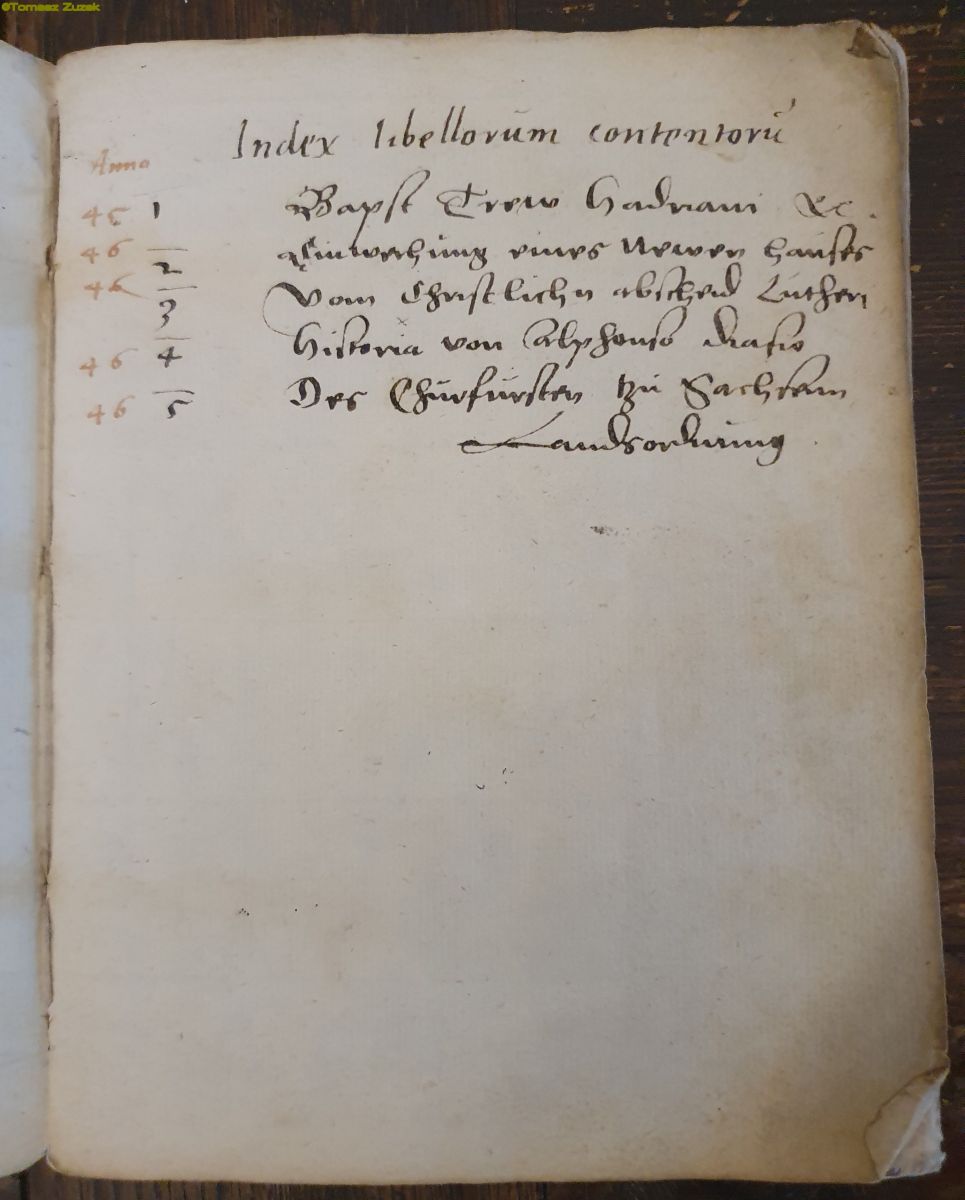 ©Tomasz Zuzek
Index libellorum contentorū
Anno
45 1 Bapst Trew Hadriani &c.
46 2 Einweihung eines Newen hauses
46 3 Vom Christlichn abscheid Lutheri
46 4 Historia von Alphonso diasio
46 5 Des Churfursten tzu Sachsenn
Landsordnung